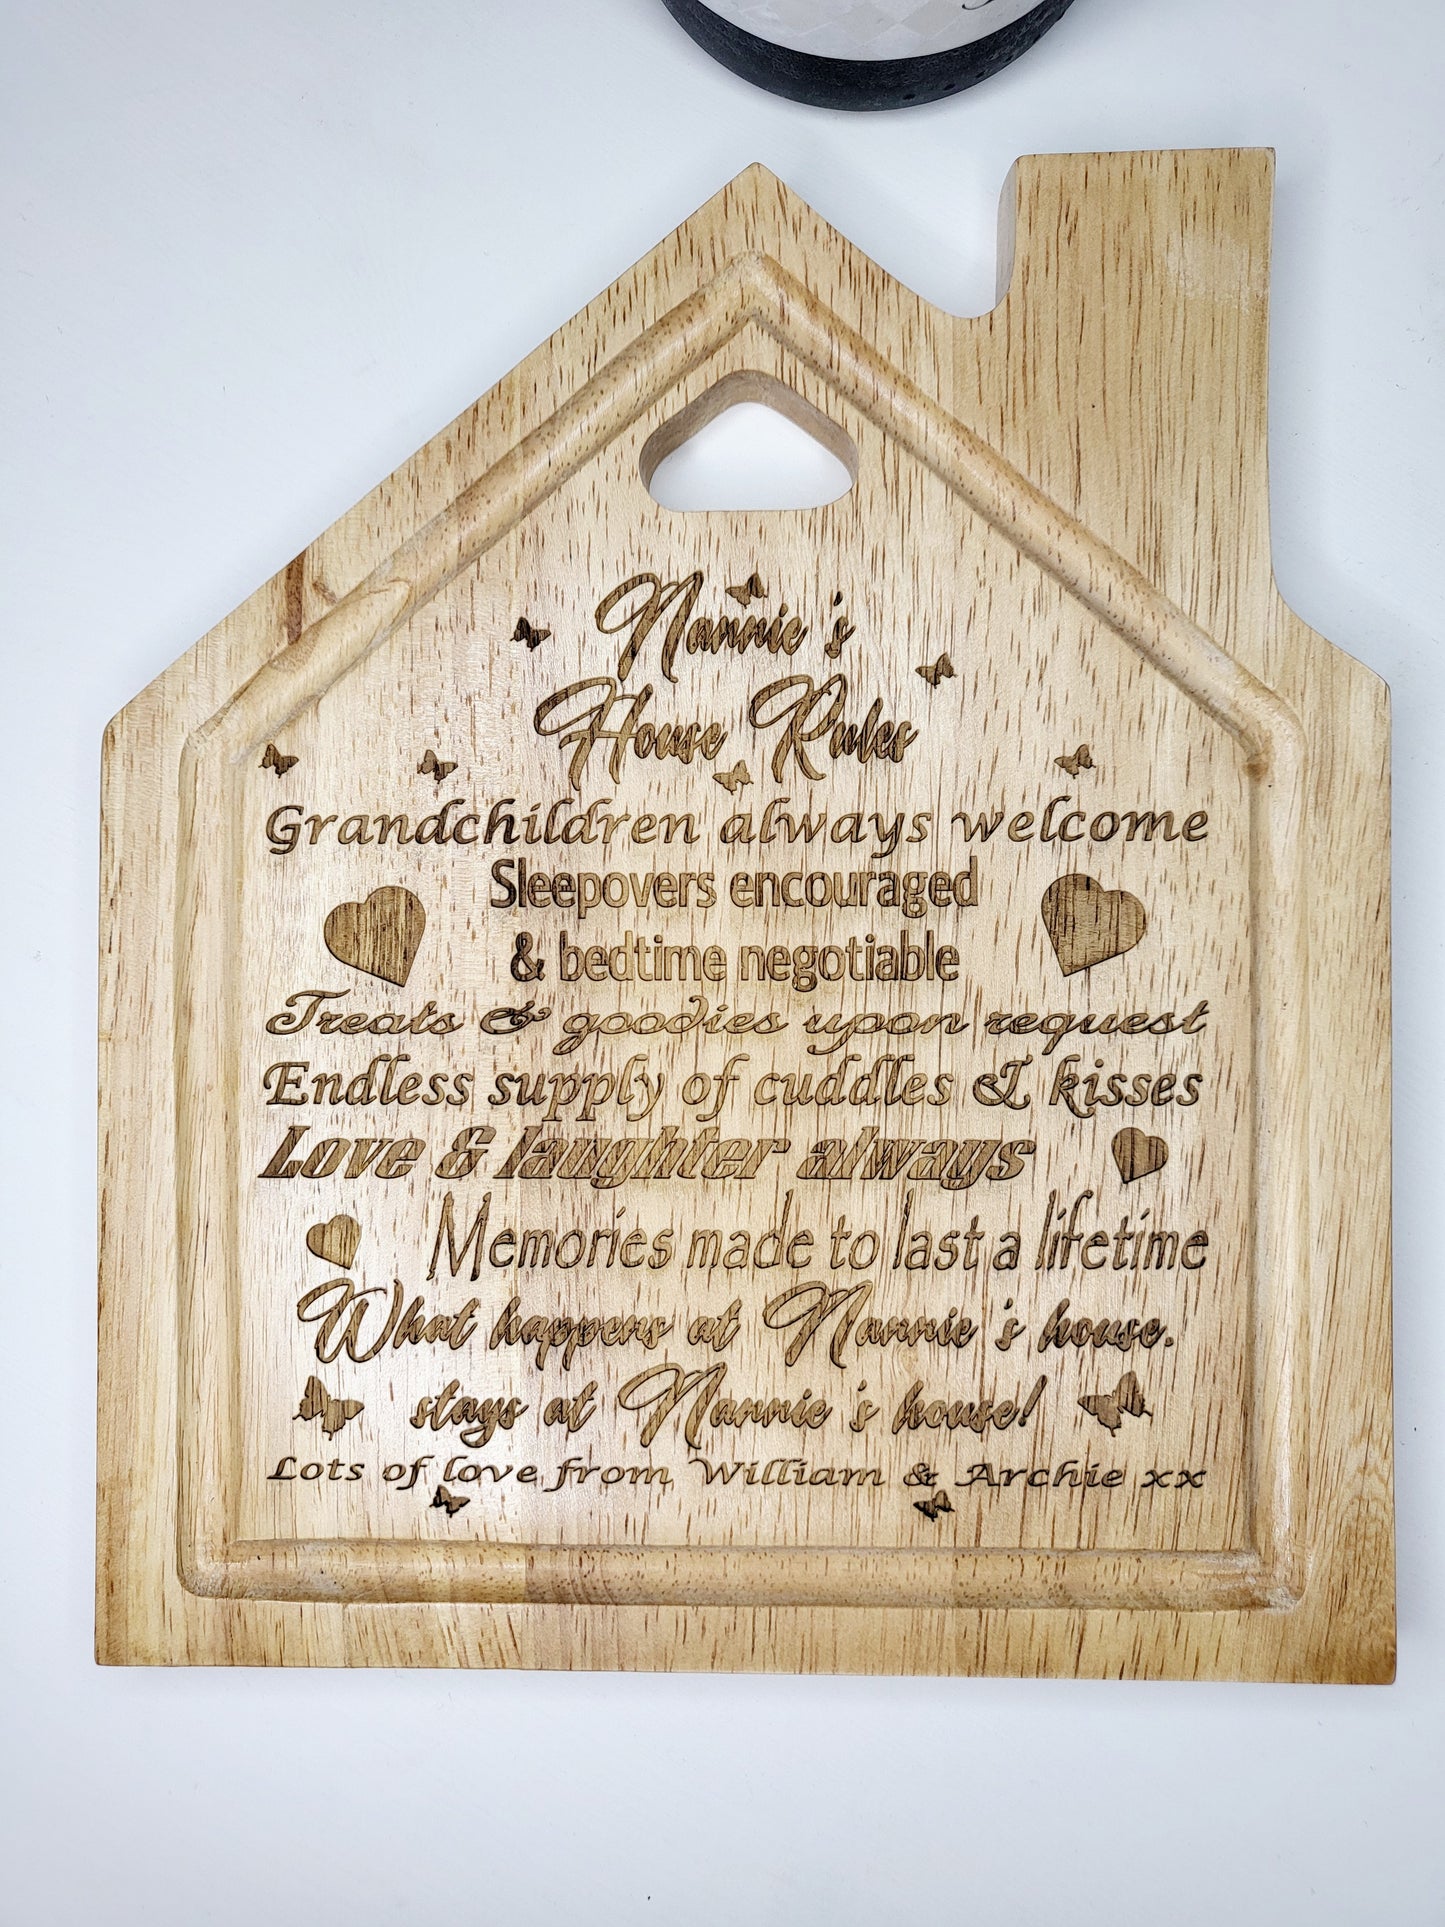 Nannie's
House Rules
Grandchildren always welcome
Sleepovers encouraged
& bedtime negotiable
Treats & goodies upon request
Endless supply of cuddles & kisses
Love & laughter always
Memories made to last a lifetime
What happens at Nannie's house.
stays at Nannie's house!
Lots of love from William & Archie xx